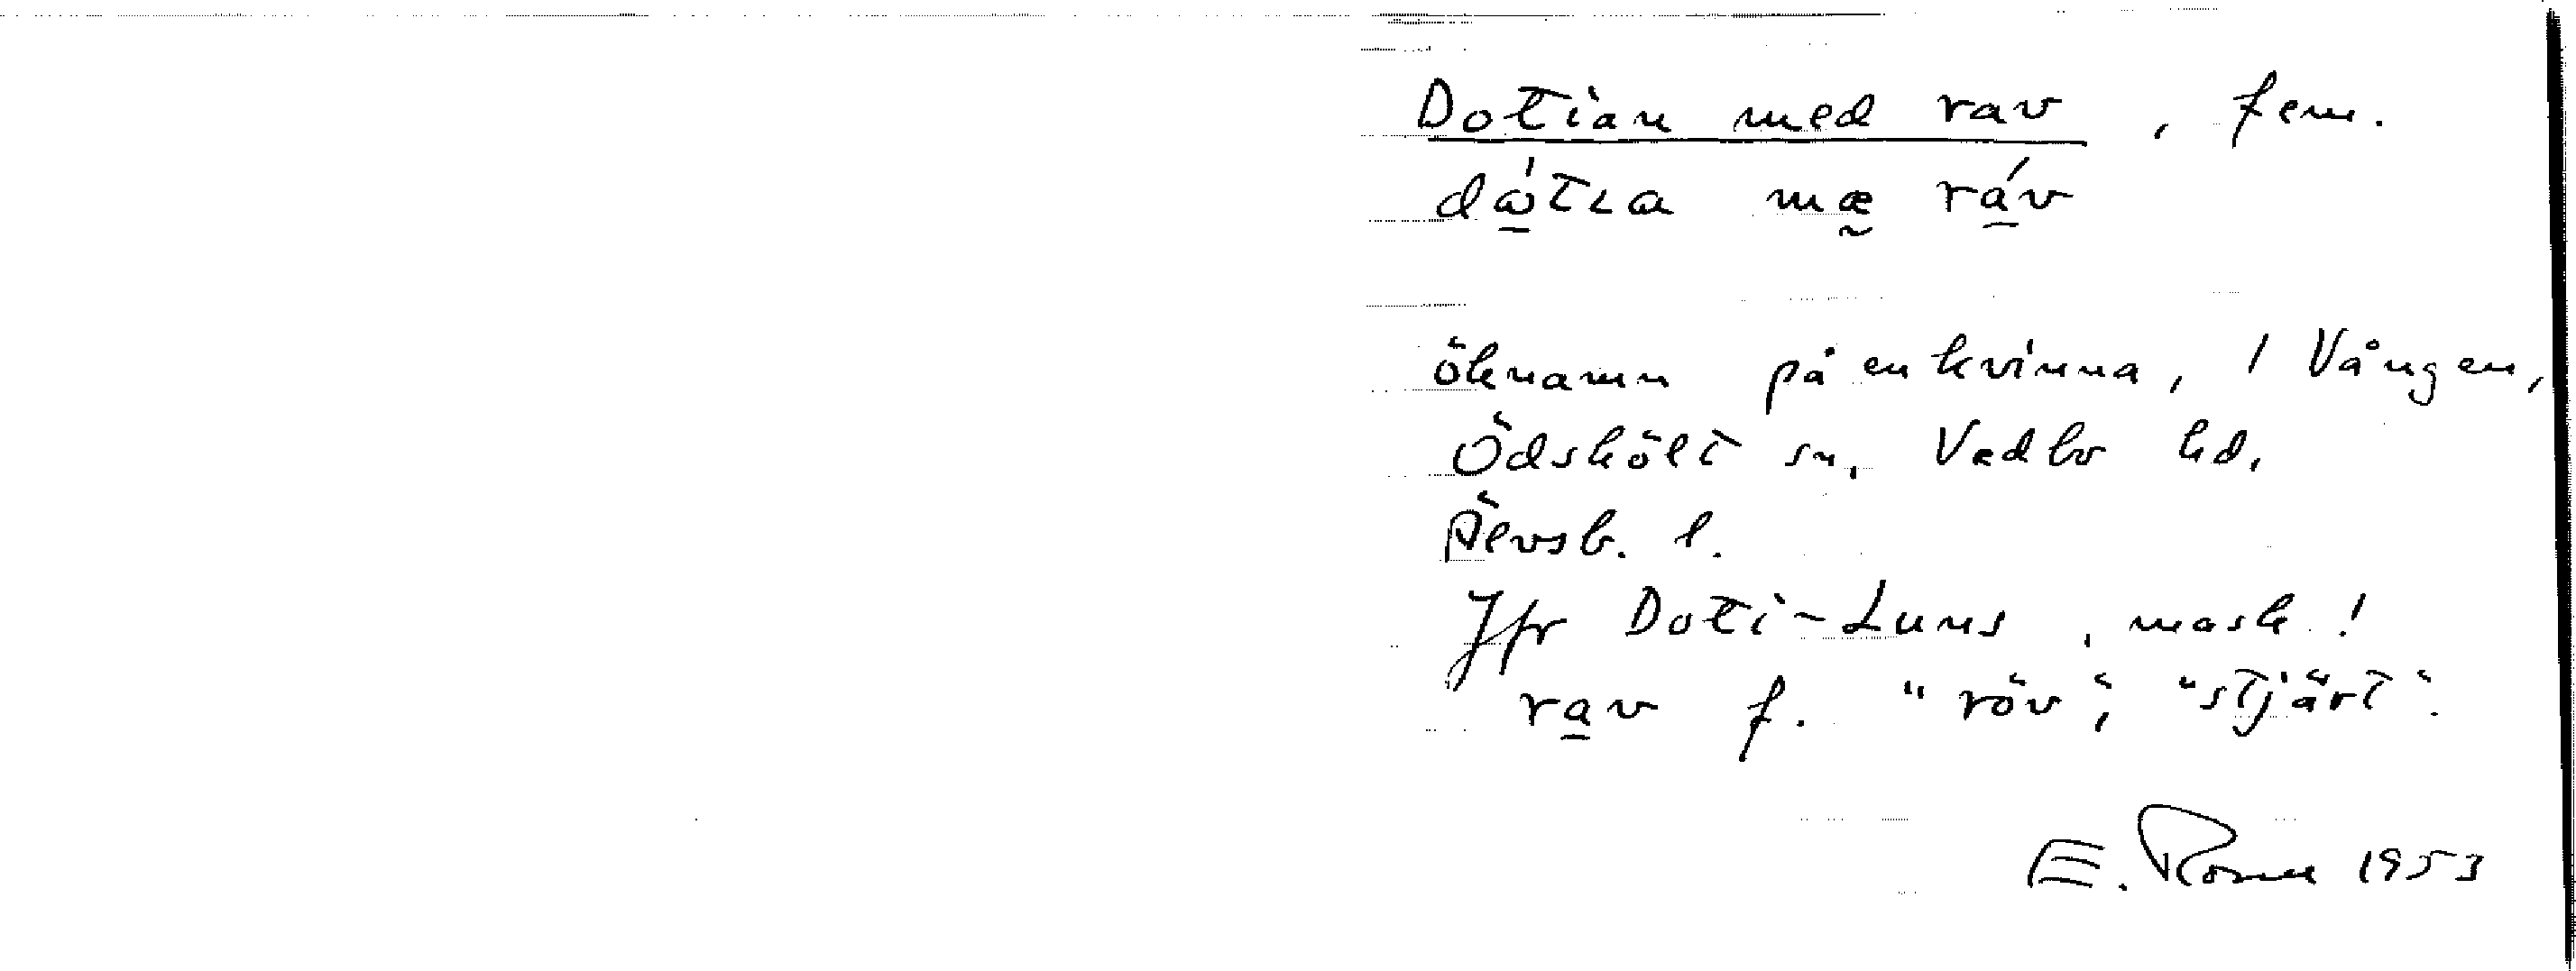 Dotian med rav, fem.
dátıa mæ ráv
öknamn på en kvinna, / Vången,
Ödskölt sn. Vedbo hd,
Älvsb. l.
Jfr Doti-Luns, mask!
rav f. "röv", "stjärt".
E. 1953